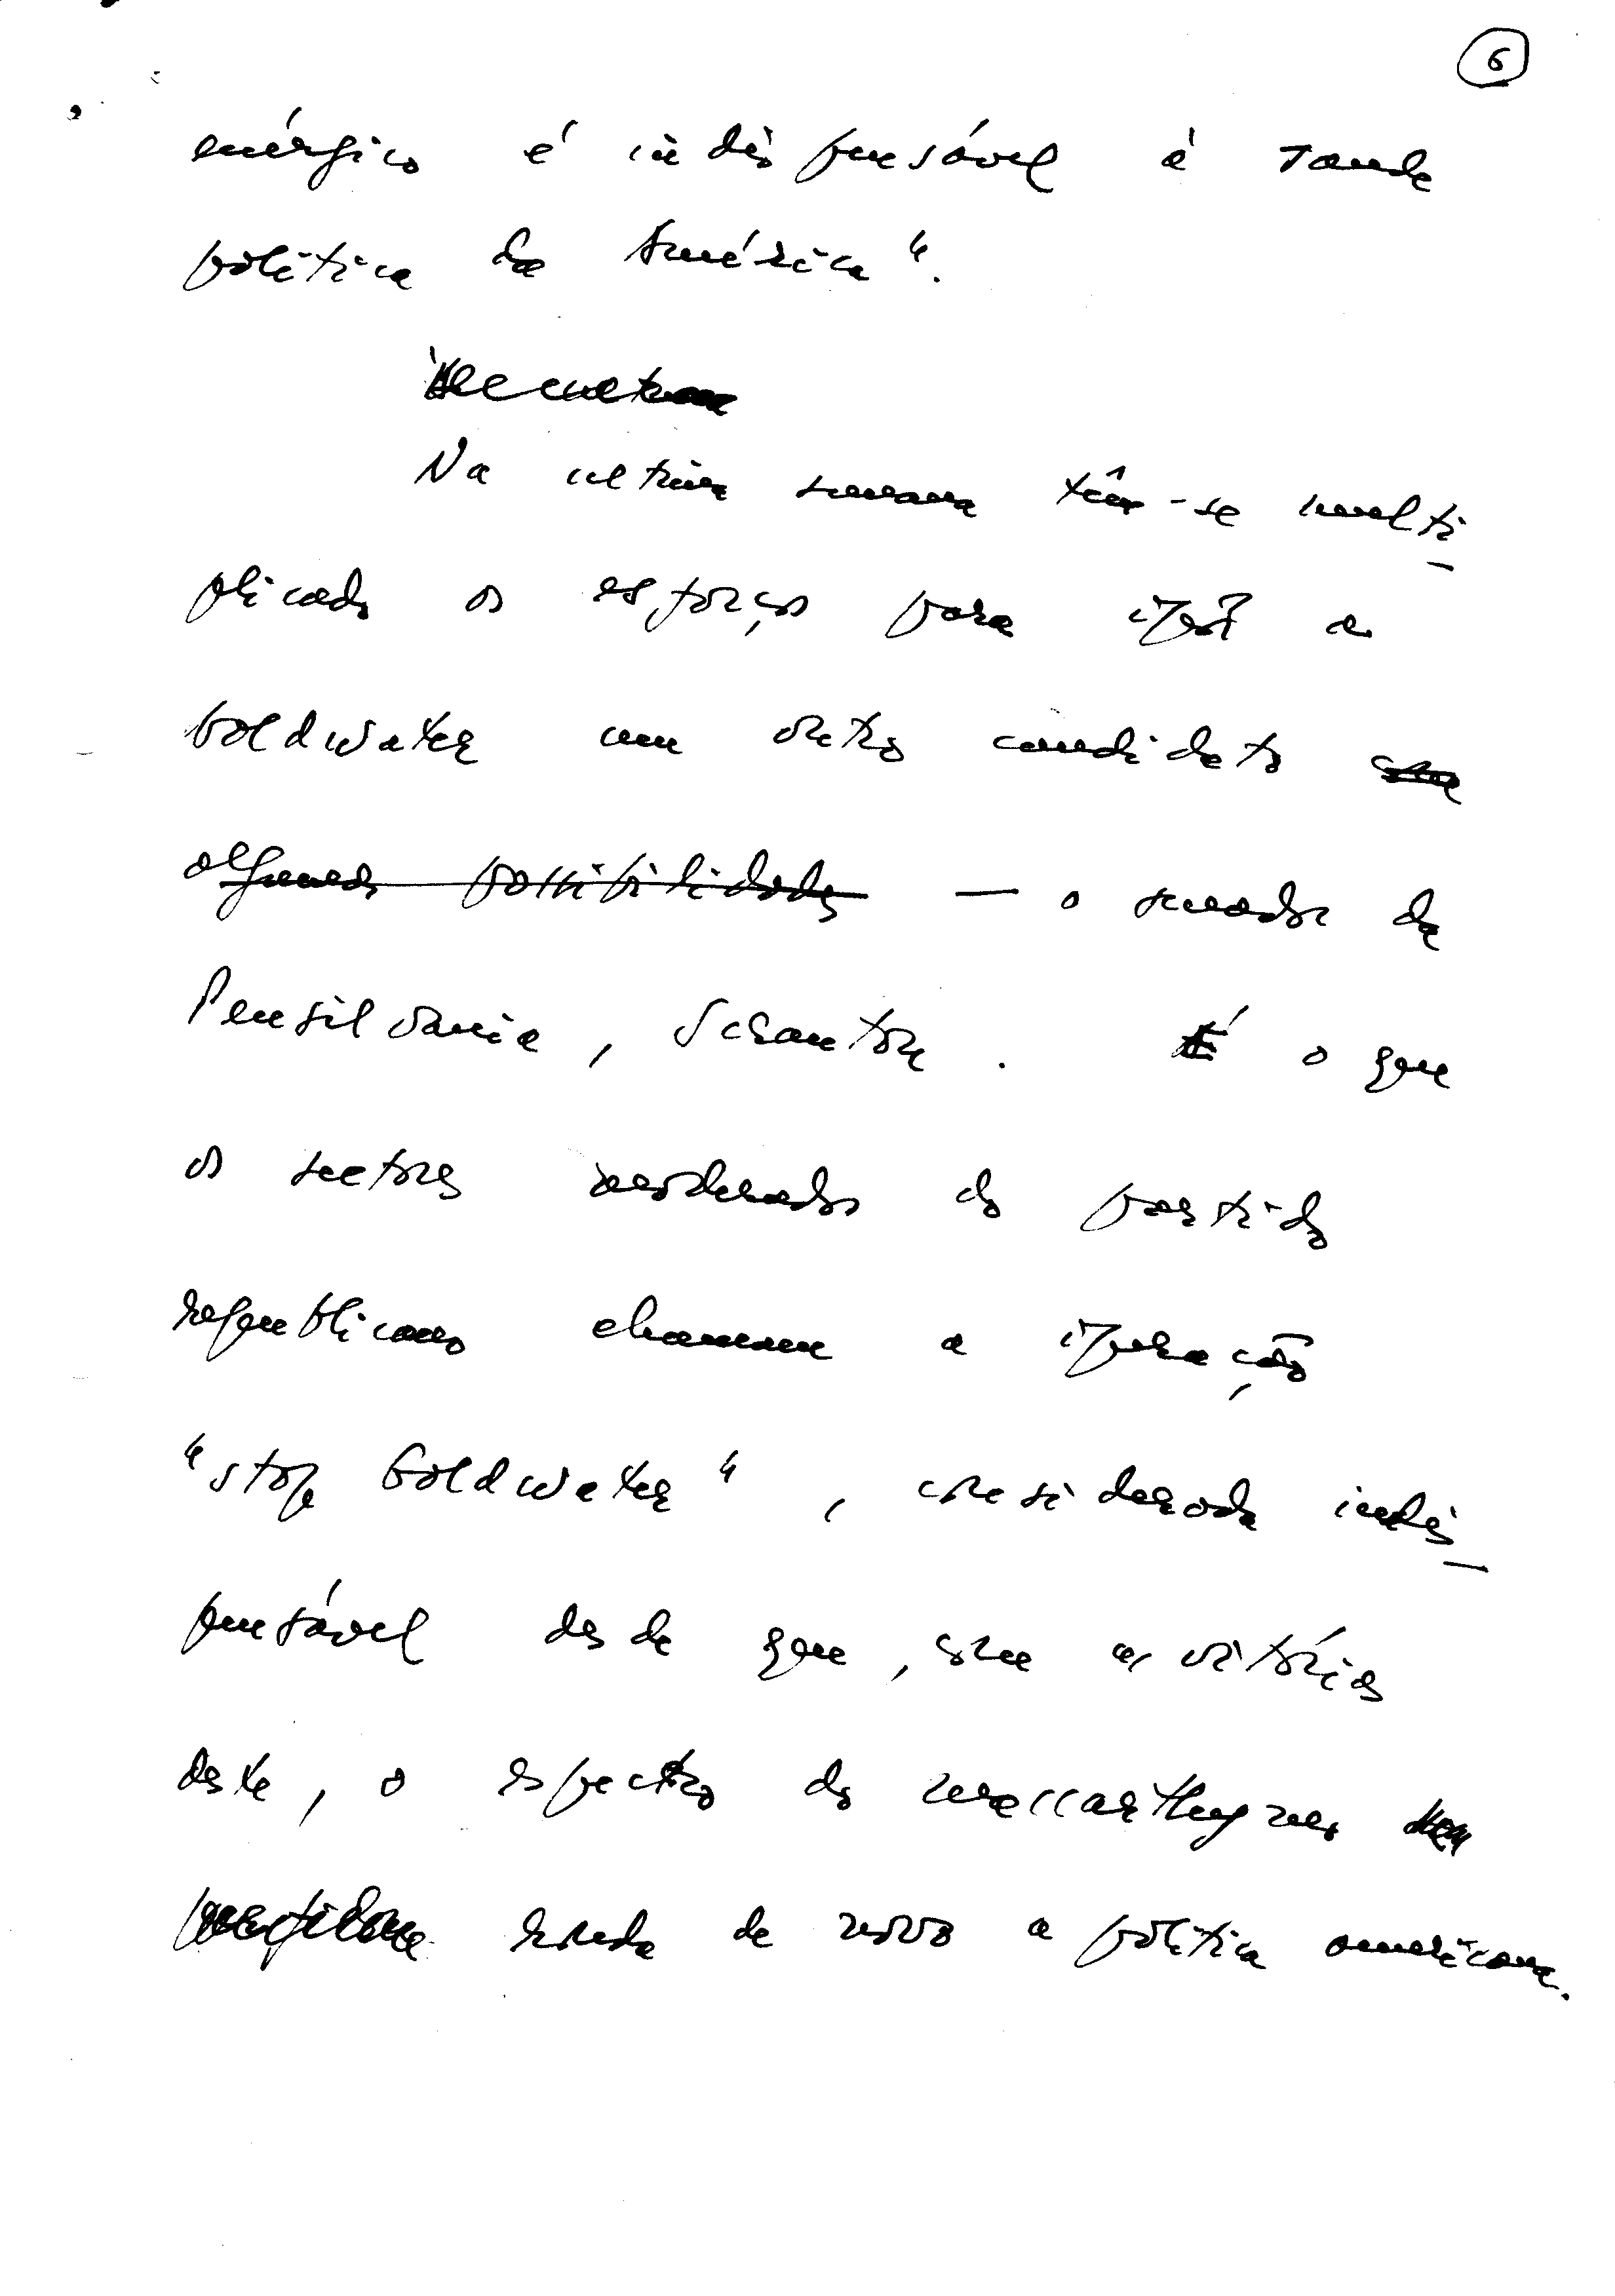 6
enérgico é indispensável à saude
politica da América".
Na ultima semana têm-se multi-
plicado os esforços para opôr a
Goldwater um outro candidato com
algumas possibilidades — o senador da
Pensilvania, Scranton. É o que
os sectores moderados do partido
republicano chamam a operação
"stop Goldwater", considerada indis-
pensável desde que, com a vitória
deste, o espectro do maccarthysmo
ronda de novo a politica americana.